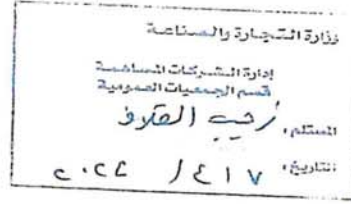 وزارة التجارة والصناعة
إدارة الشركات المساهمة
قسم الجمعيات العمومية
المستلم، القلاف
التاريخ، ٧ / ٤ / ٢٠٢٤